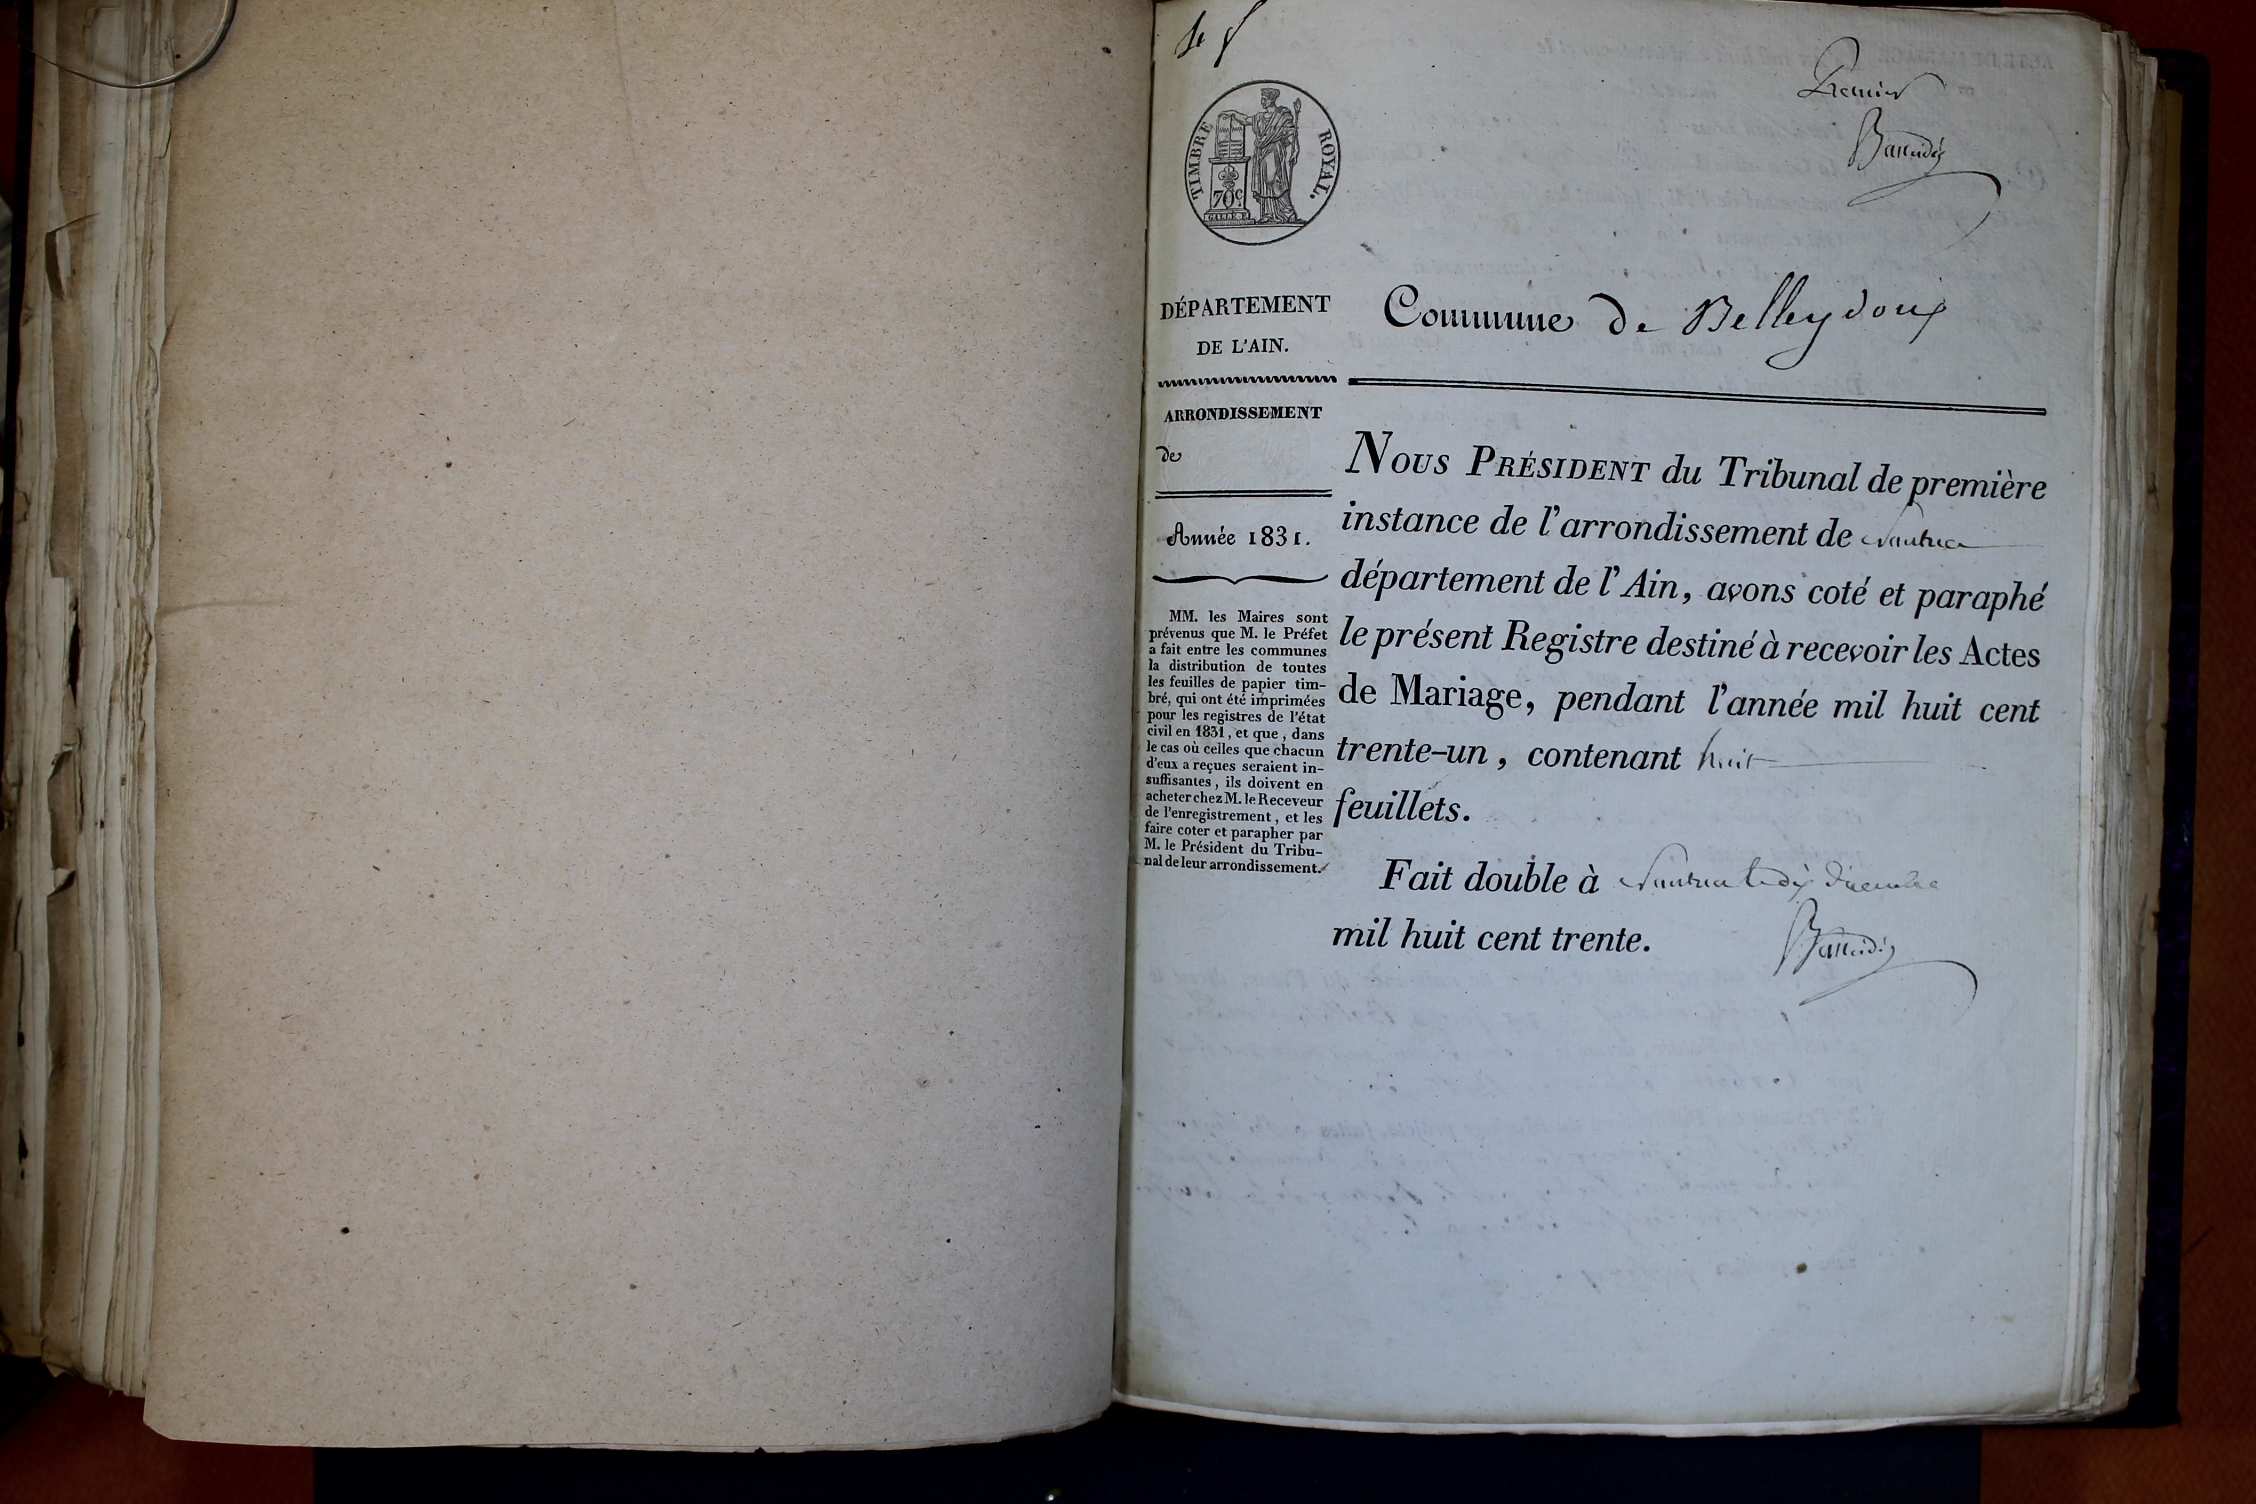 Premier
TIMBRE ROYAL.
70 c.
DÉPARTEMENT
DE L'AIN.
Commune de Belleydoux
ARRONDISSEMENT
de
Année 1831.
MM. les Maires sont
prévenus que M. le Préfet
a fait entre les communes
la distribution de toutes
les feuilles de papier tim-
bré, qui ont été imprimées
pour les registres de l'état
civil en 1831, et que, dans
le cas où celles que chacun
d'eux a reçues seraient in-
suffisantes, ils doivent en
acheter chez M. le Receveur
de l'enregistrement, et les
faire coter et parapher par
M. le Président du Tribu-
nal de leur arrondissement.
NOUS PRÉSIDENT du Tribunal de première
instance de l'arrondissement de Nantua
département de l'Ain, avons coté et paraphé
le présent Registre destiné à recevoir les Actes
de Mariage, pendant l'année mil huit cent
trente-un, contenant huit
feuillets.
Fait double à Nantua le dix décembre
mil huit cent trente.